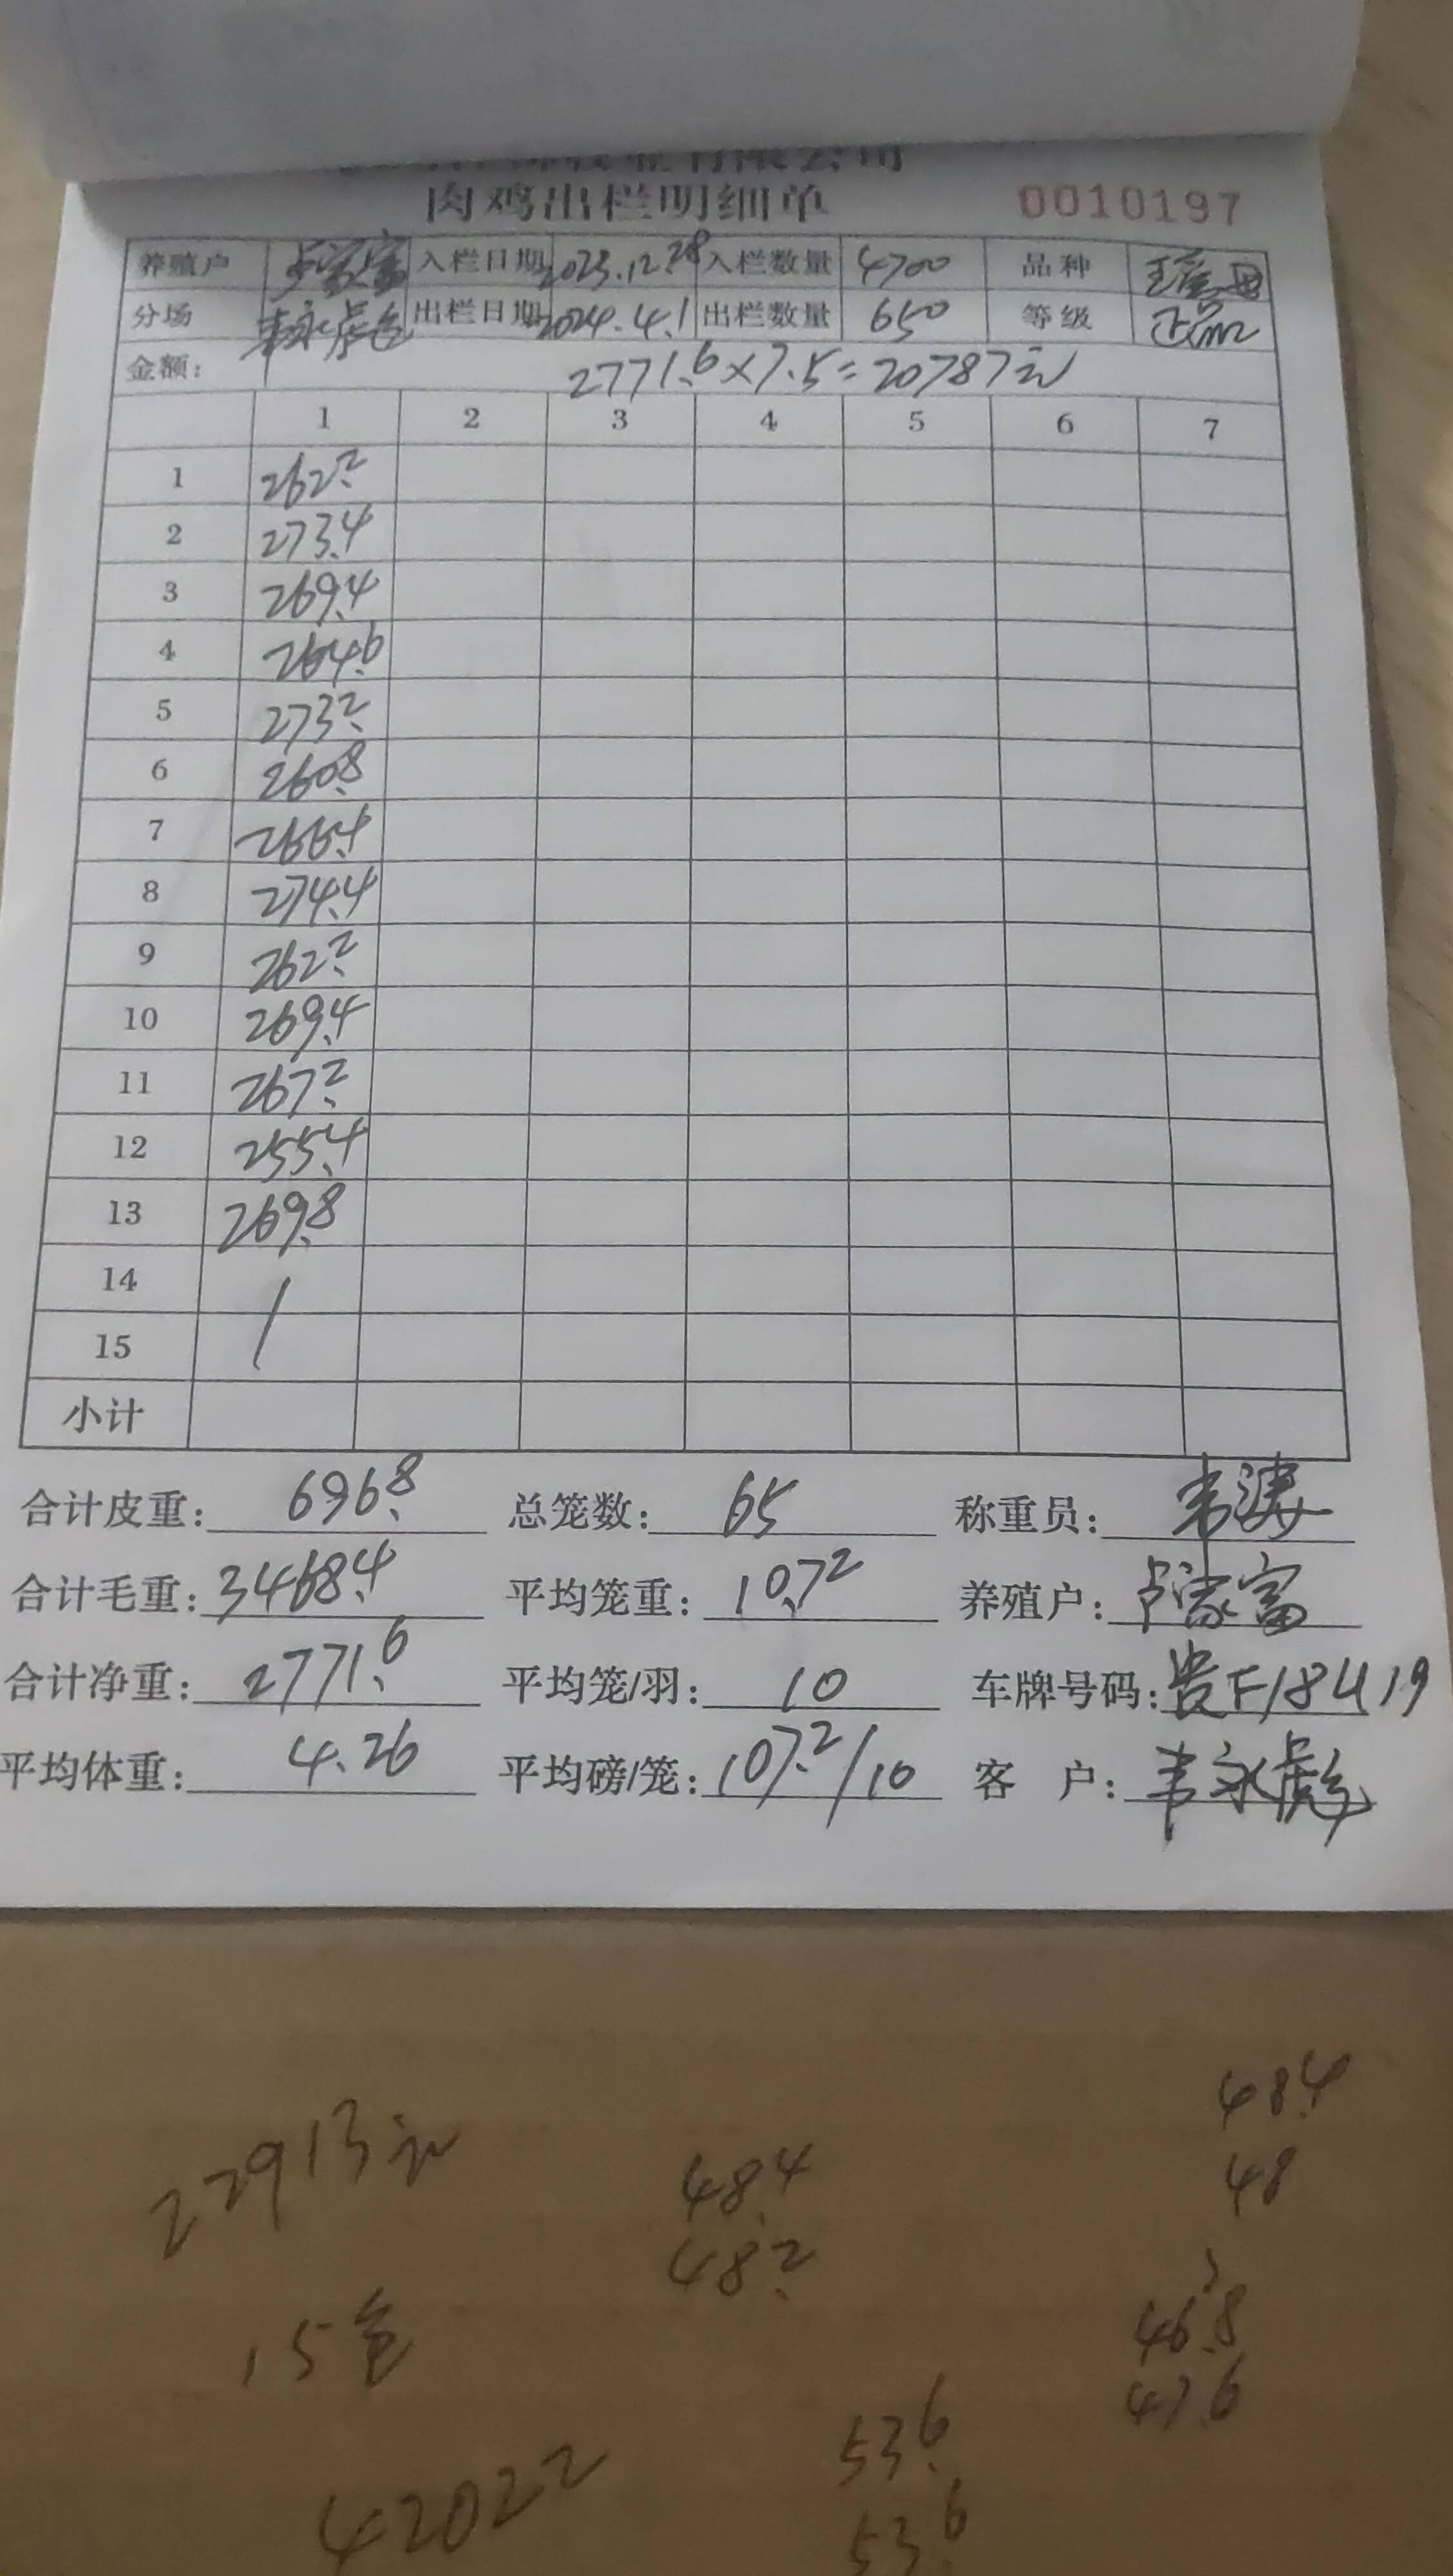 有限公司
肉鸡出栏明细单 0010197
养殖户 卢家富 入栏日期 2023.12.28 入栏数量 4700 品种
分场 韦永彪 出栏日期 2024.4.1 出栏数量 650 等级 正品
金额: 2771.6×7.5=20787元
1 2 3 4 5 6 7
1 262.2
2 273.4
3 269.4
4 264.6
5 273.2
6 260.8
7 266.4
8 274.4
9 262.2
10 269.4
11 267.2
12 255.4
13 269.8
14
15
小计
合计皮重: 696.8 总笼数: 65 称重员: 韦涛
合计毛重: 3468.4 平均笼重: 10.72 养殖户: 卢家富
合计净重: 2771.6 平均笼/羽: 10 车牌号码: 贵F18U19
平均体重: 4.26 平均磅/笼: 107.2/10 客 户: 韦永彪
48.4
22913元 48.4 48
48.2
15 46.8
47.6
53.6
42022 53.6